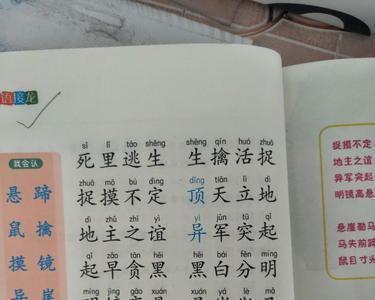 语接龙
我会认
悬 蹄
鼠 擒
摸 镜
崖
sǐ lǐ táo shēng shēng qín huó zhuō
死里逃生 生擒活捉
zhuō mō bú dìng dǐng tiān lì dì
捉摸不定 顶天立地
dì zhǔ zhī yì yì jūn tū qǐ
地主之谊 异军突起
qǐ zǎo tān hēi hēi bái fēn míng
起早贪黑 黑白分明
míng jìng gāo xuán xuán yá lè mǎ
捉摸不定
地主之谊
异军突起
明镜高悬
悬崖勒马
马失前蹄
鼠目寸光